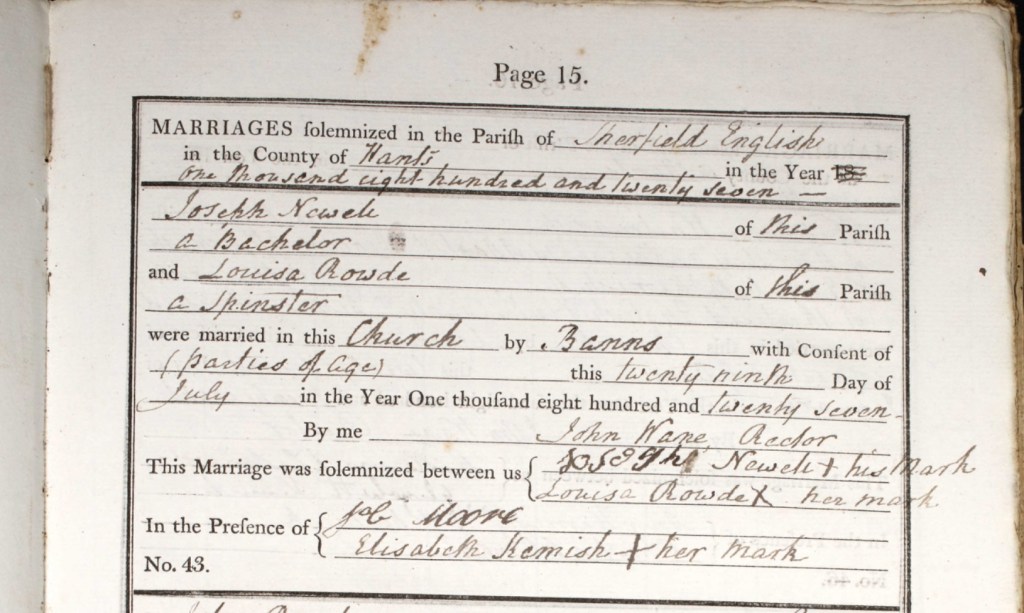 Page 15.
MARRIAGES ſolemnized in the Pariſh of Sherfield English
in the County of Hants in the Year 18
one thousand eight hundred and twenty seven —
Joseph Newell of this Pariſh
a Bachelor
and Louisa Rowde of this Pariſh
a Spinster
were married in this Church by Banns with Conſent of
(parties of age) this twenty ninth Day of
July in the Year One thouſand eight hundred and twenty seven
By me John Wane, Rector
This Marriage was ſolemnized between us { Joseph Newell + his Mark
Louisa Rowde X her mark
In the Preſence of { Job Moore
Elisabeth Kemish + her mark
No. 43.